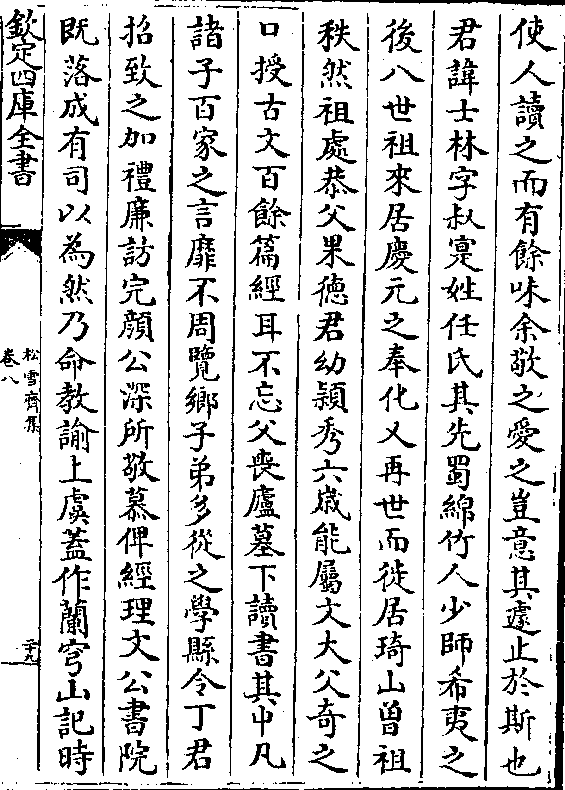 使人讀之而有餘味余敬之愛之豈意其遽止於斯也
君諱士林字叔寔姓任氏其先蜀綿竹人少師希夷之
後八世祖來居慶元之奉化乂再世而徙居琦山曽祖
秩然祖處恭父果徳君幼頴秀六歲能屬文大父奇之
口授古文百餘篇經耳不忘父喪廬墓下讀書其中凡
諸子百家之言靡不周覽鄉子弟多從之學縣令丁君
招致之加禮廉訪完顔公深所敬慕俾經理文公書院
既落成有司以為然乃命教諭上虞蓋作蘭穹山記時
欽定四庫全書
松雪齋集
卷八
二十九